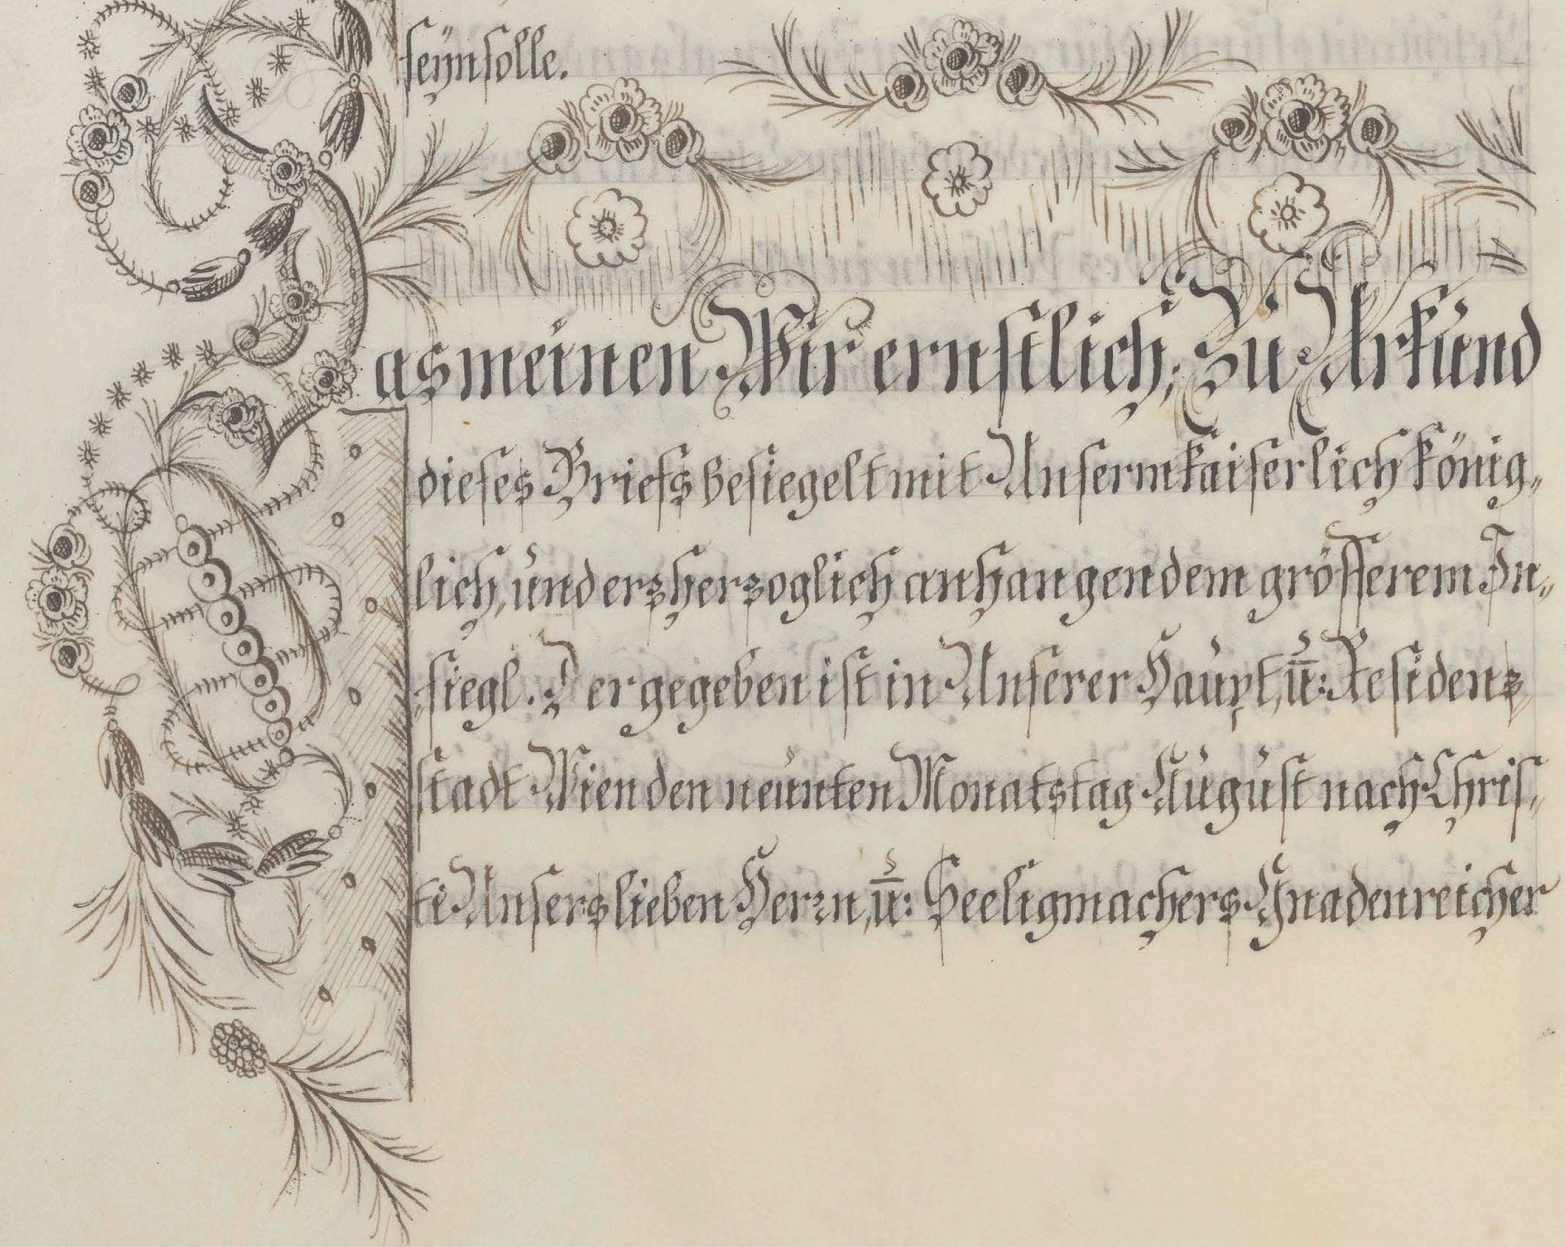 seÿn solle.
Das meinen Wir ernstlich; Zu Urkund
dieses Briefs besiegelt mit Unserm kaiserlich könig„
lich, und erzherzoglich anhangendem grösserem In„
siegl. Der gegeben ist in Unserer Haupt, u: Residenz
stadt Wien den neunten Monatstag August nach Chris„
ti Unsers lieben Herrn, u: Seeligmachers Gnadenreicher